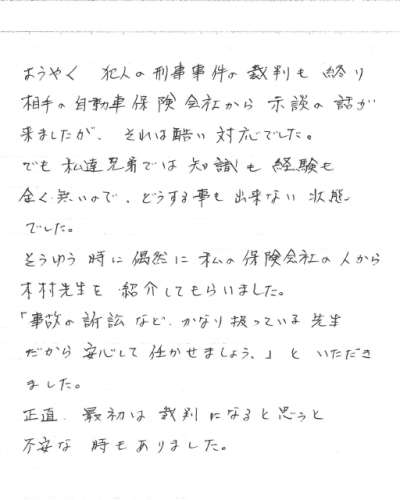 ようやく 犯人の刑事事件の裁判も終り
相手の自動車保険会社から示談の話が
来ましたが、それは酷い対応でした。
でも私達兄弟では知識も経験も
全く無いので、どうする事も出来ない状態
でした。
そうゆう時に偶然に私の保険会社の人から
木村先生を紹介してもらいました。
「事故の訴訟など、かなり扱っている先生
だから安心して任かせましょう、」といただき
ました。
正直、最初は裁判になると思うと
不安な時もありました。